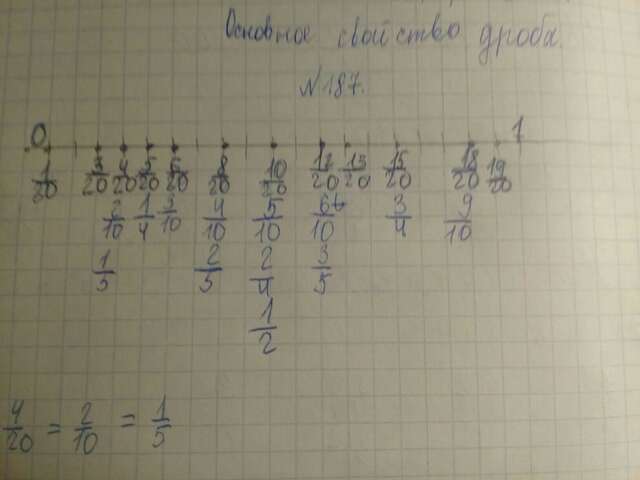 Основное свойство дроби.
№187.
0 1
1/20 3/20 4/20 5/20 6/20 8/20 10/20 12/20 13/20 15/20 18/20 19/20
2/10 1/4 3/10 4/10 5/10 6/10 3/4 9/10
1/5 2/5 2/4 3/5
1/2
4/20 = 2/10 = 1/5